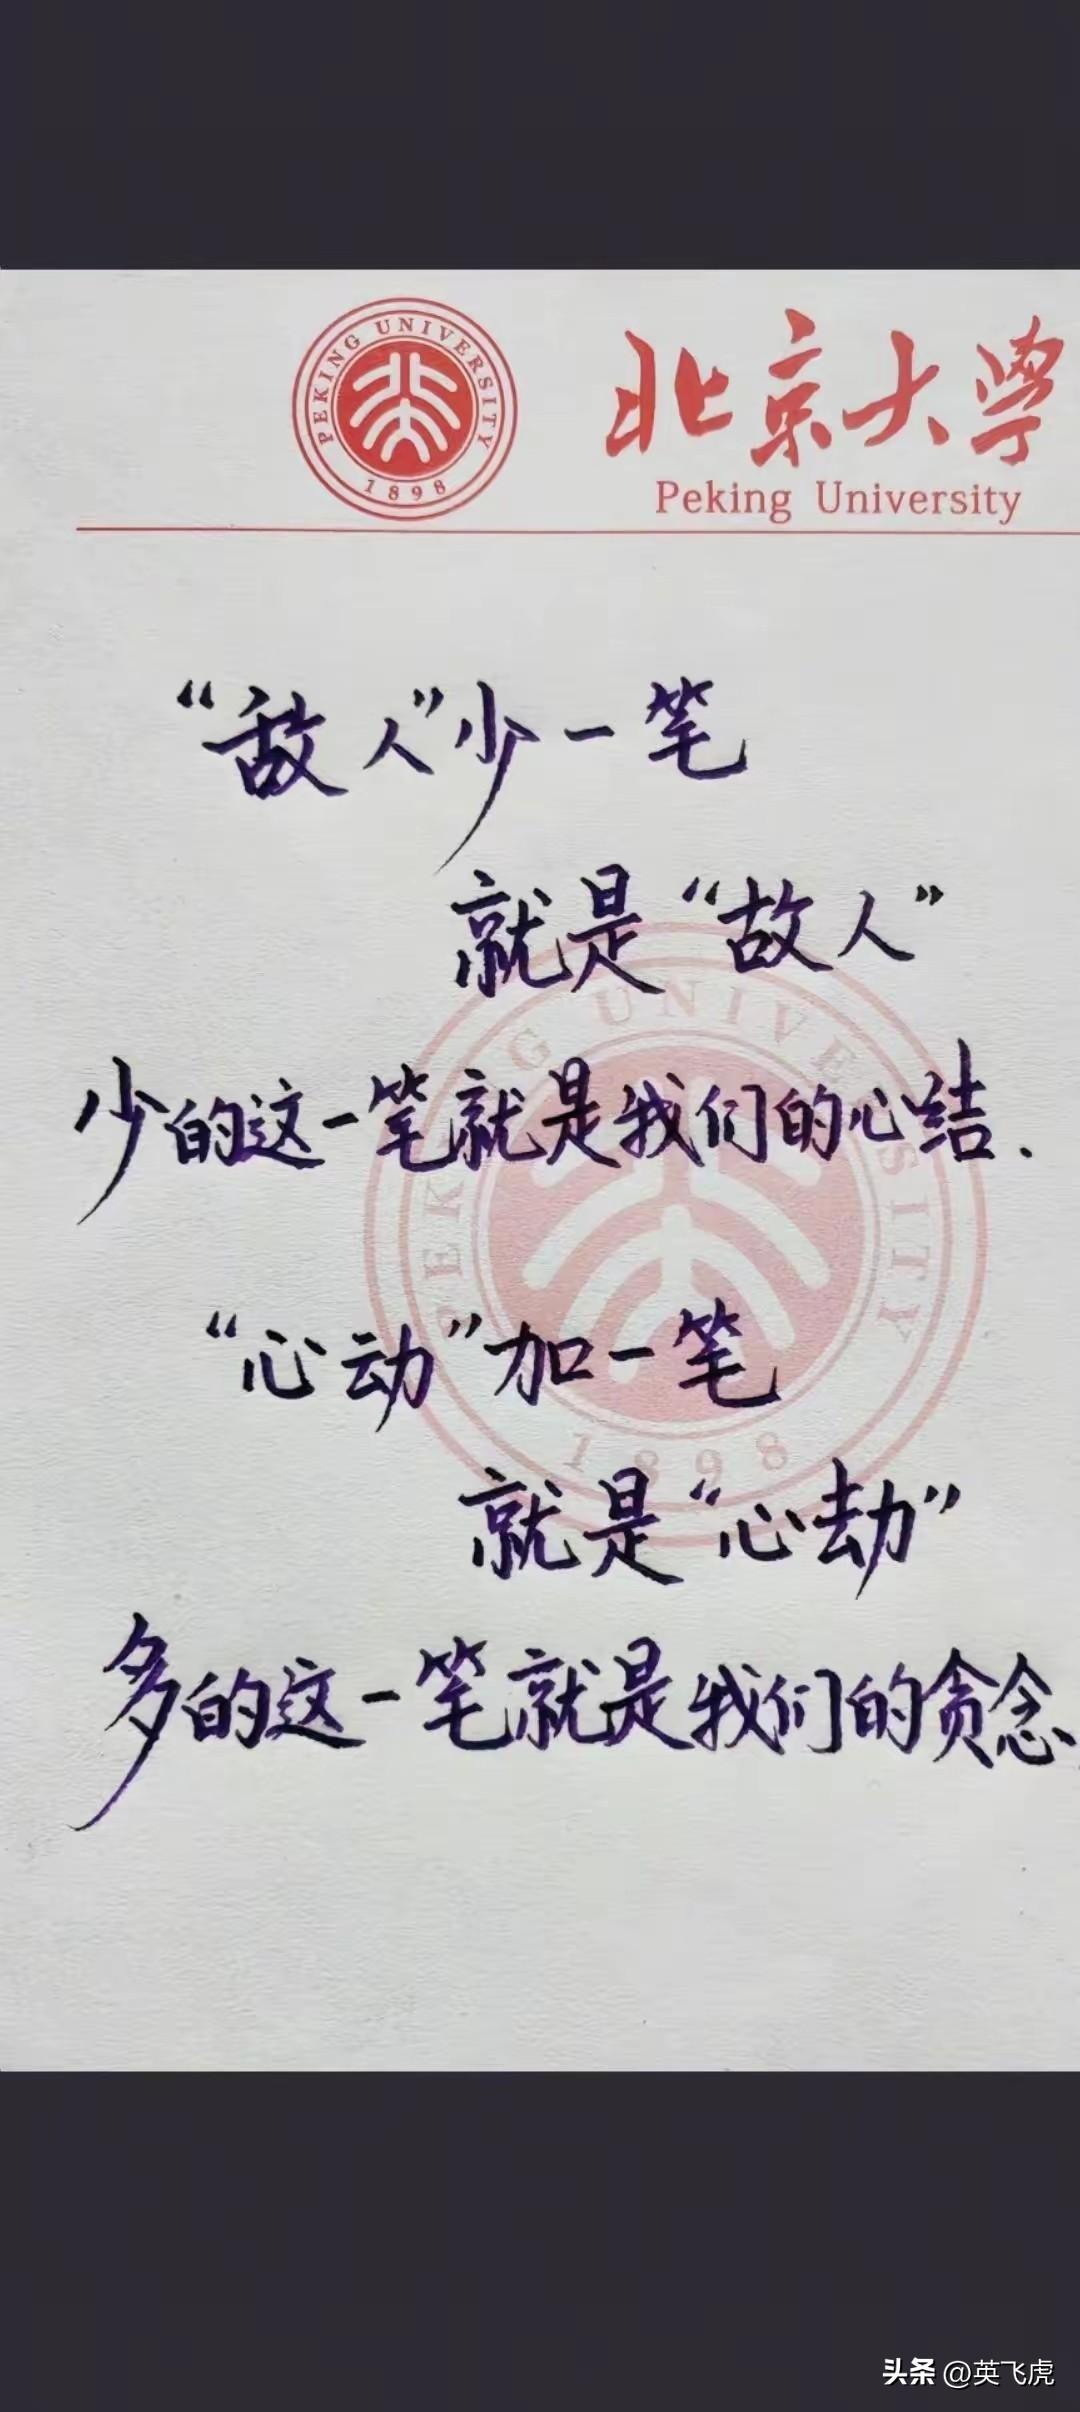 PEKING UNIVERSITY
1898
北京大学
Peking University
“敌人”少一笔
就是“故人”
少的这一笔就是我们的心结.
PEKING UNIVERSITY
1898
“心动”加一笔
就是“心劫”
多的这一笔就是我们的贪念.
头条 @英飞虎